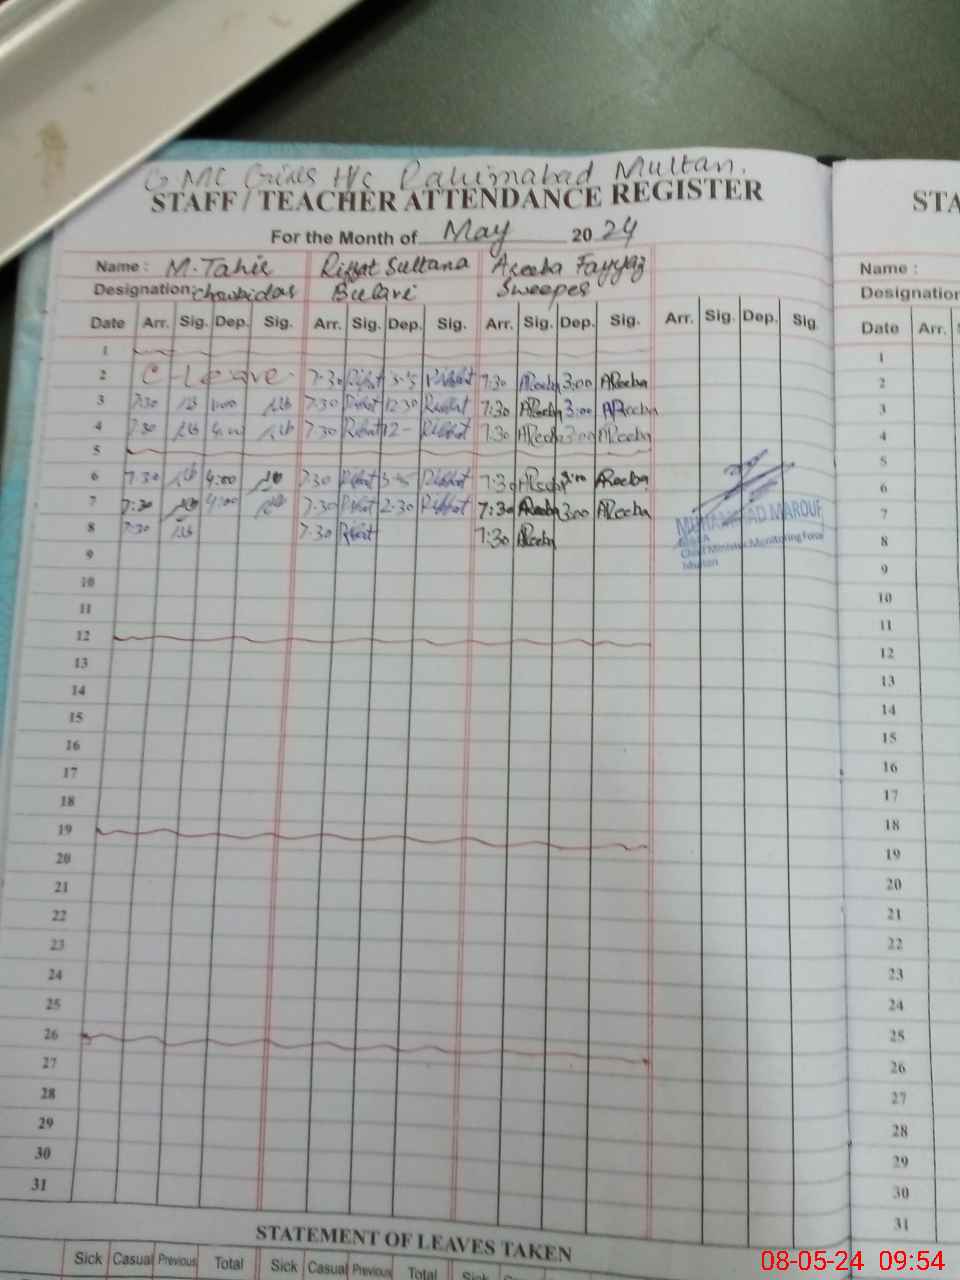 G MC Girls H/c Rahimabad Multan.
STAFF / TEACHER ATTENDANCE REGISTER
STA
For the Month of May 2024
Name : M. Tahir Riffat Sultana Areeba Fayyaz
Name :
Designation: chowkidar Bulavi Sweeper
Designation
Date Arr. Sig. Dep. Sig. Arr. Sig. Dep. Sig. Arr. Sig. Dep. Sig. Arr. Sig. Dep. Sig.
Date Arr.
1
2 C-Leave 7-30 Riffat Riffat 7:30 AReeba 3:00 AReeba
3 7:30 7-30 Riffat 12-30 Riffat 7:30 AReeba 3:00 AReeba
4 7:30 7-30 Riffat 12- Riffat 7:30 AReeba 3:00 AReeba
5
6 7:30 4:00 7-30 Riffat Riffat 7:30 AReeba 3:00 AReeba
7 7:30 4:00 7-30 Riffat 2-30 Riffat 7:30 AReeba 3:00 AReeba
8 7:30 7-30 Riffat 7:30 AReeba
9
10
11
12
13
14
15
16
17
18
19
20
21
22
23
24
25
26
27
28
29
30
31
MUHAMMAD MAROUF
Chief Minister Monitoring Force
Multan
1
2
3
4
5
6
7
8
9
10
11
12
13
14
15
16
17
18
19
20
21
22
23
24
25
26
27
28
29
30
31
STATEMENT OF LEAVES TAKEN
Sick Casual Previous Total Sick Casual Previous Total Sick Casual
08-05-24 09:54